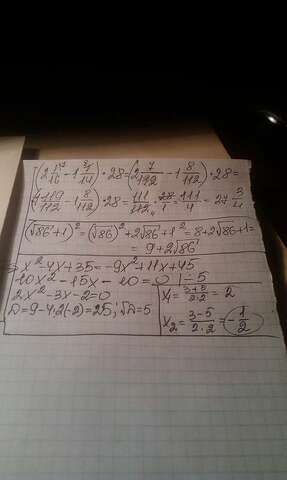 (2 1/16 - 1 1/14) · 28 = (2 7/112 - 1 8/112) · 28 =
(1 119/112 - 1 8/112) · 28 = 111/112 · 28/1 = 111/4 = 27 3/4
(√86 + 1)² = (√86)² + 2√86 + 1² = 8 + 2√86 + 1 =
= 9 + 2√86
x² - 4x + 35 = -9x² + 11x + 45
10x² - 15x - 10 = 0 | ÷ 5
2x² - 3x - 2 = 0
D = 9 - 4·2(-2) = 25; √D = 5
x₁ = (3+5)/(2·2) = 2
x₂ = (3-5)/(2·2) = -1/2